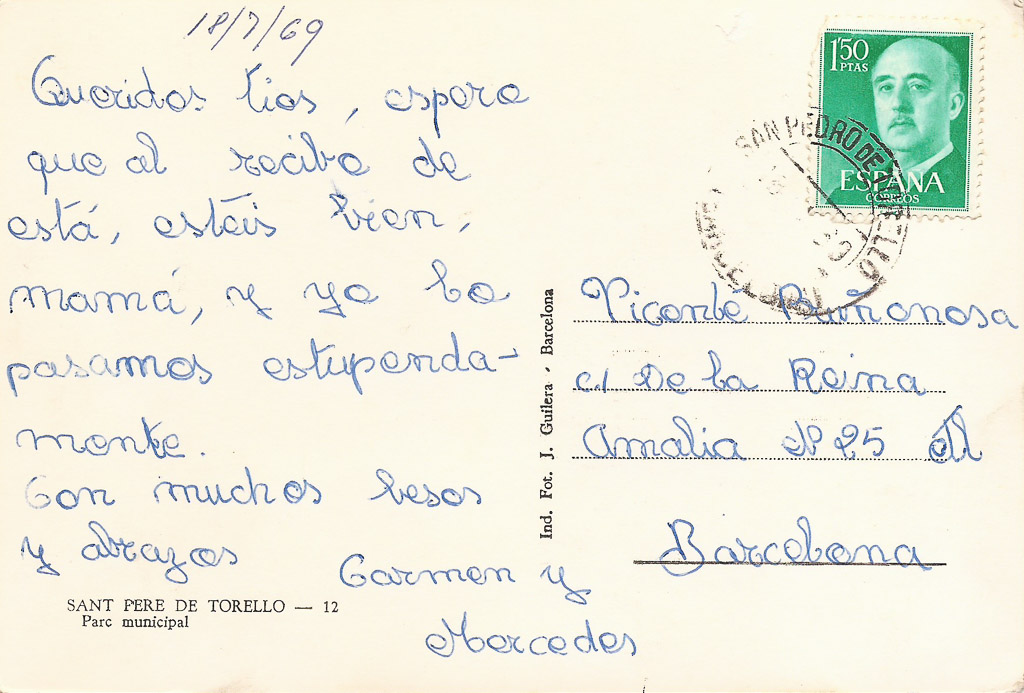 18/7/69
Queridos tios, espero
que al recibo de
está, estéis bien,
mamá, y yo lo
pasamos estupenda-
mente.
Con muchos besos
y abrazos
Carmen y
Mercedes
SANT PERE DE TORELLO — 12
Parc municipal
Ind. Fot. J. Guilera - Barcelona
1'50
PTAS
ESPAÑA
CORREOS
SAN PEDRO DE TORELLO
Vicenté Buñonosa
c/ De la Reina
Amalia Nº 25
Barcelona